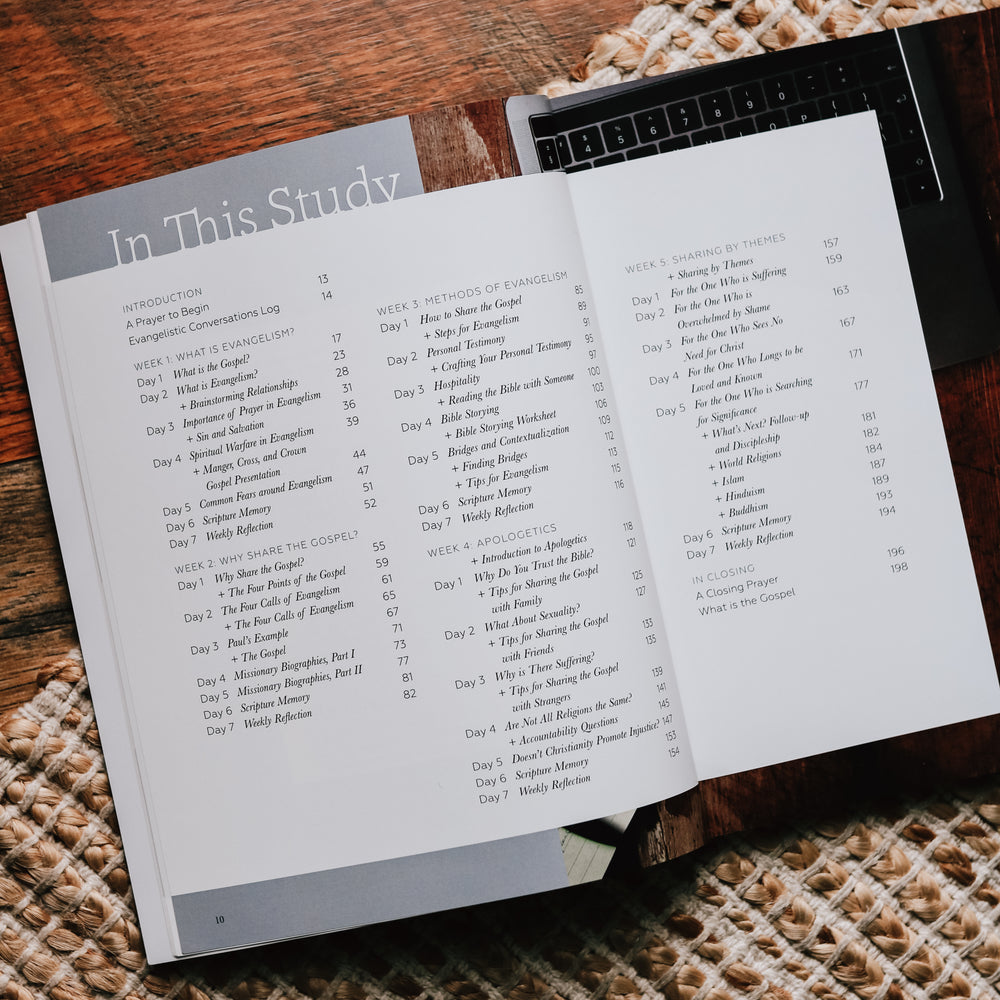 4 5 6 7 8 9 0
O P
In This Study
INTRODUCTION
A Prayer to Begin 13
Evangelistic Conversations Log 14
WEEK 1: WHAT IS EVANGELISM?
Day 1 What is the Gospel? 17
Day 2 What is Evangelism? 23
+ Brainstorming Relationships 28
Day 3 Importance of Prayer in Evangelism 31
+ Sin and Salvation 36
Day 4 Spiritual Warfare in Evangelism 39
+ Manger, Cross, and Crown
Gospel Presentation 44
Day 5 Common Fears around Evangelism 47
Day 6 Scripture Memory 51
Day 7 Weekly Reflection 52
WEEK 2: WHY SHARE THE GOSPEL?
Day 1 Why Share the Gospel? 55
+ The Four Points of the Gospel 59
Day 2 The Four Calls of Evangelism 61
+ The Four Calls of Evangelism 65
Day 3 Paul's Example 67
+ The Gospel 71
Day 4 Missionary Biographies, Part I 73
Day 5 Missionary Biographies, Part II 77
Day 6 Scripture Memory 81
Day 7 Weekly Reflection 82
WEEK 3: METHODS OF EVANGELISM
Day 1 How to Share the Gospel 85
+ Steps for Evangelism 89
Day 2 Personal Testimony 91
+ Crafting Your Personal Testimony 95
Day 3 Hospitality 97
+ Reading the Bible with Someone 100
Day 4 Bible Storying 103
+ Bible Storying Worksheet 106
Day 5 Bridges and Contextualization 109
+ Finding Bridges 112
+ Tips for Evangelism 113
Day 6 Scripture Memory 115
Day 7 Weekly Reflection 116
WEEK 4: APOLOGETICS
+ Introduction to Apologetics 118
Day 1 Why Do You Trust the Bible? 121
+ Tips for Sharing the Gospel
with Family 125
Day 2 What About Sexuality? 127
+ Tips for Sharing the Gospel
with Friends 133
Day 3 Why is There Suffering? 135
+ Tips for Sharing the Gospel
with Strangers 139
Day 4 Are Not All Religions the Same? 141
+ Accountability Questions 145
Day 5 Doesn't Christianity Promote Injustice? 147
Day 6 Scripture Memory 153
Day 7 Weekly Reflection 154
10
WEEK 5: SHARING BY THEMES
+ Sharing by Themes 157
Day 1 For the One Who is Suffering 159
Day 2 For the One Who is
Overwhelmed by Shame 163
Day 3 For the One Who Sees No
Need for Christ 167
Day 4 For the One Who Longs to be
Loved and Known 171
Day 5 For the One Who is Searching
for Significance 177
+ What's Next? Follow-up
and Discipleship 181
+ World Religions 182
+ Islam 184
+ Hinduism 187
+ Buddhism 189
Day 6 Scripture Memory 193
Day 7 Weekly Reflection 194
IN CLOSING
A Closing Prayer 196
What is the Gospel 198